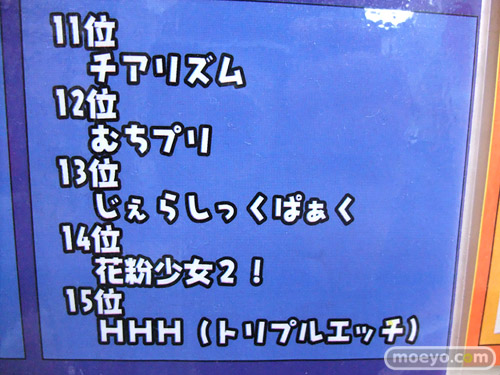 11位
チアリズム
12位
むちプリ
13位
じぇらしっくぱぁく
14位
花粉少女2！
15位
HHH（トリプルエッチ）
moeyo.com